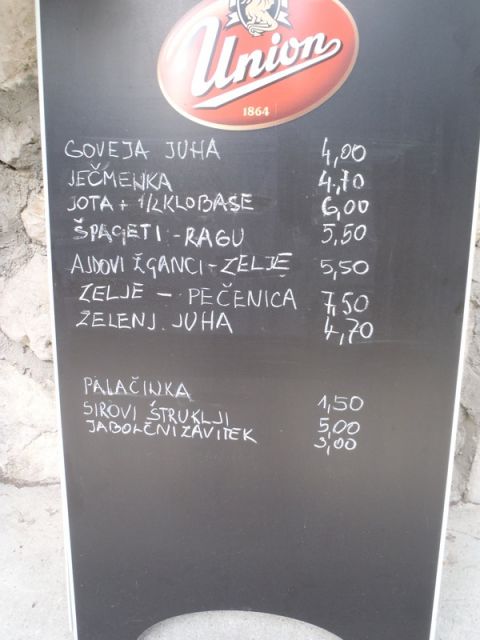 Union
1864
GOVEJA JUHA 4,00
JEČMENKA 4.70
JOTA + 1/2 KLOBASE 6,00
ŠPAGETI - RAGU 5,50
AJDOVI ŽGANCI - ZELJE 5,50
ZELJE - PEČENICA 7,50
ZELENJ. JUHA 4,70
PALAČINKA 1,50
SIROVI ŠTRUKLJI 5,00
JABOLČNI ZAVITEK 3,00